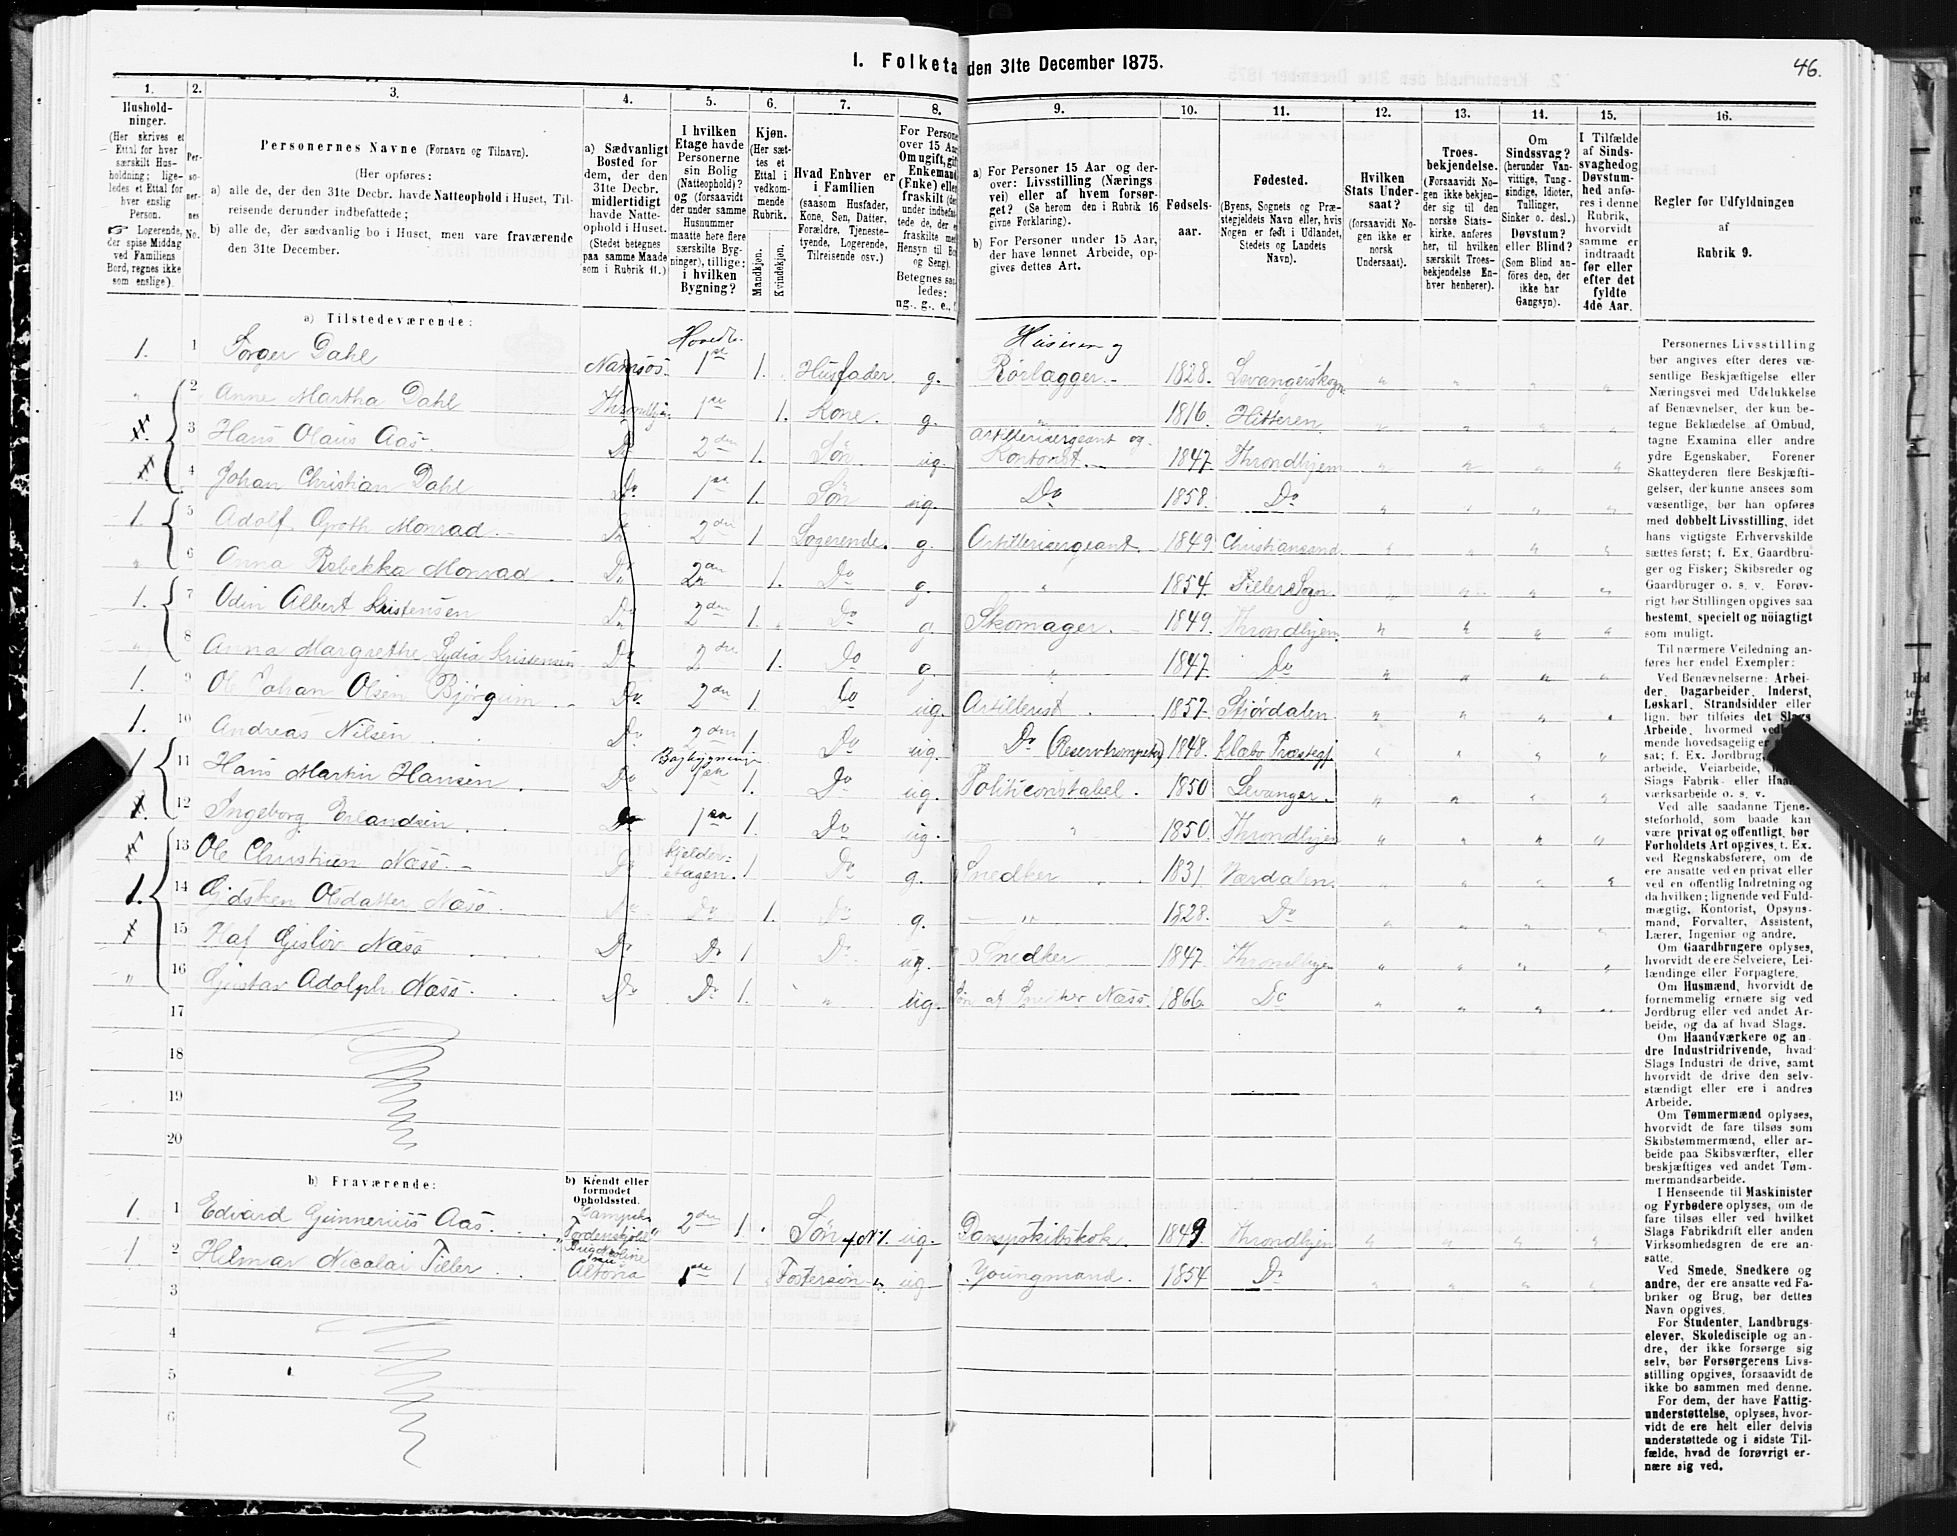 1. Folketa
den 31te December 1875.
46.
1.
2.
3.
4.
5.
6.
7.
8.
9.
10.
11.
12.
13.
14.
15.
16.
Hushold-
ninger.
(Her skrives et
Ettal for hver
særskilt Hus-
holdning; lige-
ledes et Ettal for
hver enslig
Person.
Logerende,
der spise Middag
ved Familiens
Bord, regnes ikke
som enslige).
Per-
so-
ner-
nes
No.
Personernes Navne (Fornavn og Tilnavn).
(Her opføres:
a) alle de, der den 31te Decbr. havde Natteophold i Huset, Til-
reisende derunder indbefattede;
b) alle de, der sædvanlig bo i Huset, men vare fraværende
den 31te December.
a) Sædvanligt
Bosted for
dem, der den
31te Decbr.
midlertidigt
havde Natte-
ophold i Huset.
(Stedet betegnes
paa samme Maade
som i Rubrik 11.)
I hvilken
Etage havde
Personerne
sin Bolig
(Natteophold)?
og (forsaavidt
der under samme
Husnummer
maatte høre flere
særskilte Byg-
ninger), tillige:
i hvilken
Bygning?
Kjøn.
(Her sæt-
tes et
Ettal i
vedkom-
mende
Rubrik.
Mandkjøn.
Kvindekjøn.
Hvad Enhver er
i Familien
(saasom Husfader,
Kone, Søn, Datter,
Forældre, Tjeneste-
tyende, Logerende,
Tilreisende osv.)
For Persone
over 15 Aa
Om ugift, gif
Enkemand
(Enke) elle
fraskilt (de
under indbefat-
tede de, der e
fraskilte me
Hensyn til Bo
og Seng).
Betegnes saa-
ledes:
ug., g., e.,
a) For Personer 15 Aar og der-
over: Livsstilling (Nærings
vei) eller af hvem forsør-
get? (Se herom den i Rubrik 16
givne Forklaring).
b) For Personer under 15 Aar,
der have lønnet Arbeide, op-
gives dettes Art.
Fødsels-
aar.
Fødested.
(Byens, Sognets og Præ-
stegjeldets Navn eller, hvis
Nogen er født i Udlandet,
Stedets og Landets
Navn).
Hvilken
Stats Under-
saat?
(forsaavidt No-
gen ikke er
norsk
Undersaat).
Troes-
bekjendelse.
(Forsaavidt No-
gen ikke bekjen-
der sig til den
norske Stats-
kirke, anføres
her, til hvilken
særskilt Troes-
bekjendelse En-
hver henhører).
Om
Sindssvag?
(herunder Van-
vittige, Tung-
sindige, Idioter,
Tullinger,
Sinker o. desl.)
Døvstum?
eller Blind?
(Som Blind an-
føres den, der
ikke har
Gangsyn).
I Tilfælde
af Sinds-
svaghed og
Døvstum-
hed anfø-
res i denne
Rubrik,
hvorvidt
samme er
indtraadt
før eller
efter det
fyldte
4de Aar.
Regler før Udfyldningen
af
Rubrik 9.
a) Tilstedeværende:
1. 1 Torger Dahl Namsos. 1ste 1. Husfader g. Huseier og Rørlægger. 1828. Levangerskogn
" 2 Anne Martha Dahl Throndhjem 1ste 1. Kone. g. " 1816. Hitteren
3 Hans Olaus Aas. Do 2den 1. Søn ug. Artillerisergeant og Kontorist. 1847. Throndhjem
4 Johan Christian Dahl Do 1ste 1. Søn ug. Do 1858. Do
1. 5 Adolf Groth Monrad. Do 2den 1 Logerende. g. Artillerisergeant. 1849. Christianssund
" 6 Anna Rebekka Monrad Do 2den 1. Do g. " 1854. Tiller Sogn
1. 7 Odin Albert Kristensen Do 2den 1. Do g. Skomager. 1849. Throndhjem
" 8 Anna Margrethe Lydia Kristensen Do 2den 1. Do g. " 1847. Do
1. 9 Ole Johan Olsen Bjørgum Do 2den 1. Do ug. Artillerist 1857. Stjørdalen
1. 10 Andreas Nilsen Do 2den 1. Do ug. Do 1848. Klæbo Præstegj.
1 11 Hans Martin Hansen. Do Bagbygningen 1ste 1. Do ug. Politiconstabel. 1850 Levanger.
12 Ingeborg Erlandsen. Do 1ste 1. Do ug. " 1850. Throndhjem
13 Ole Christian Næss. Do Kjelder-etagen. 1 Do g. Snedker 1831 Værdalen.
1. 14 Gidsken Olsdatter Næss Do Do 1. Do g. " 1828. Do
15 Olaf Gisløv Næss Do Do 1 Do ug. Snedker 1847 Throndhjem
" 16 Gustav Adolph Næss. Do Do 1. " ug. Søn af Snedker Næss. 1866. Do
17
18
19
20
b) Fraværende:
b) Kjendt eller
formodet
Opholdssted.
1. 1 Edvard Gunnerius Aas. Dampsk. "Tordenskjold" 2den 1. Søn ug. Dampskibskok. 1849 Throndhjem
1 2 Hilmar Nicolai Tiller Altona 1ste 1 Fostersøn ug Youngmand. 1854 Do
3
4
5
6
Personernes Livsstilling
bør angives efter deres væ-
sentlige Beskjæftigelse eller
Næringsvei med Udelukkelse
af Benævnelser, der kun be-
tegne Beklædelse af Ombud,
tagne Examina eller andre
ydre Egenskaber. Forener
Skatteyderen flere Beskjæfti-
gelser, der kunne ansees som
væsentlige, bør han opføres
med dobbelt Livsstilling, idet
hans vigtigste Erhvervskilde
sættes først; f. Ex. Gaardbru-
ger og Fisker; Skibsreder og
Gaardbruger o. s. v. Forøv-
rigt bør Stillingen opgives saa
bestemt, specielt og nöiagtigt
som muligt.
Til nærmere Veiledning an-
føres her endel Exempler:
Ved Benævnelserne: Arbei-
der, Dagarbeider, Inderst,
Løskarl, Strandsidder eller
lign. bør tilføies det Slags
Arbeide, hvormed
mende hovedsagelig er
sat; f. Ex. Jordbrug,
arbeide, Veiarbeide,
Slags Fabrik- eller
værksarbeide o. s. v.
Ved alle saadanne Tjene-
steforhold, som baade kan
være privat og offentligt, bør
Forholdets Art opgives, t. Ex.
ved Regnskabsførere, om de
ere ansatte ved en privat eller
ved en offentlig Indretning og
da hvilken; lignende ved Fuld-
mægtig, Kontorist, Opsyns-
mand, Forvalter, Assistent,
Lærer, Ingeniør og andre.
Om Gaardbrugere oplyses,
hvorvidt de ere Selveiere, Lei-
lændinge eller Forpagtere.
Om Husmænd, hvorvidt de
fornemmelig ernære sig ved
Jordbrug eller ved andet Ar-
beide, og da af hvad Slags.
Om Haandværkere og an-
dre Industridrivende, hvad
Slags Industri de drive, samt
hvorvidt de drive den selv-
stændigt eller ere i andres
Arbeide.
Om Tømmermænd oplyses,
hvorvidt de fare tilsøs som
Skibstømmermænd, eller ar-
beide paa Skibsværfter, eller
beskjæftiges ved andet Tøm-
mermandsarbeide.
I Henseende til Maskinister
og Fyrbødere oplyses, om de
fare tilsøs eller ved hvilket
Slags Fabrikdrift eller anden
Virksomhedsgren de ere an-
satte.
Ved Smede, Snedkere og
andre, der ere ansatte ved Fa-
briker og Brug, bør dettes
Navn opgives.
For Studenter, Landbrugs-
elever, Skoledisciple og an-
dre, der ikke forsørge sig
selv, bør Forsørgerens Livs-
stilling opgives, forsaavidt de
ikke bo sammen med denne.
For dem, der have Fattig-
understøttelse, oplyses, hvor-
vidt de ere helt eller delvis
understøttede og i sidste Til-
fælde, hvad de forøvrigt er-
nære sig ved.